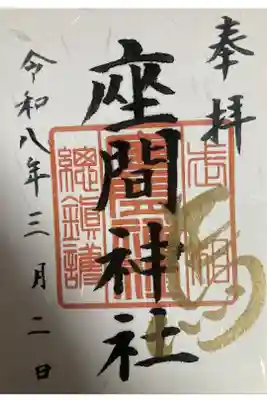 奉拝
座間神社
令和八年三月二日
總鎮護